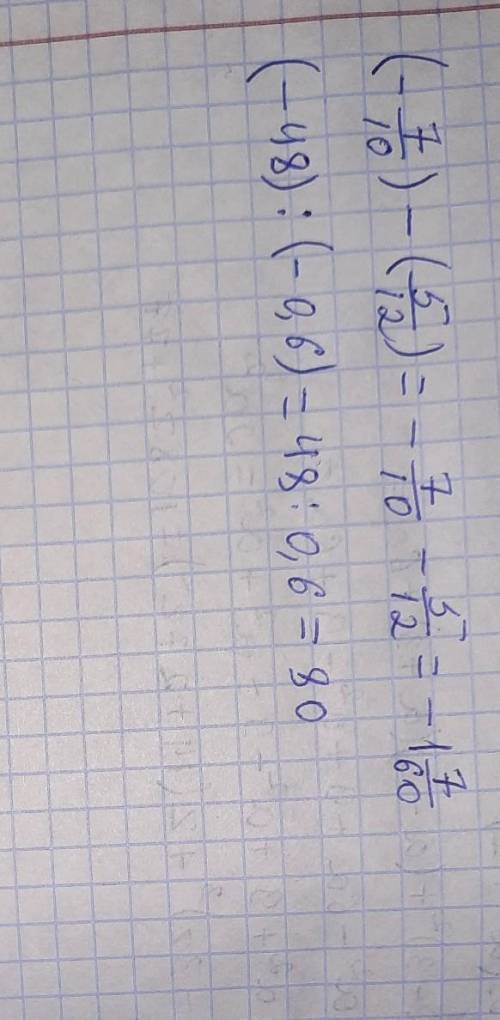 (-7/10) - (5/12) = -7/10 - 5/12 = -1 7/60
(-48) : (-0,6) = 48 : 0,6 = 80